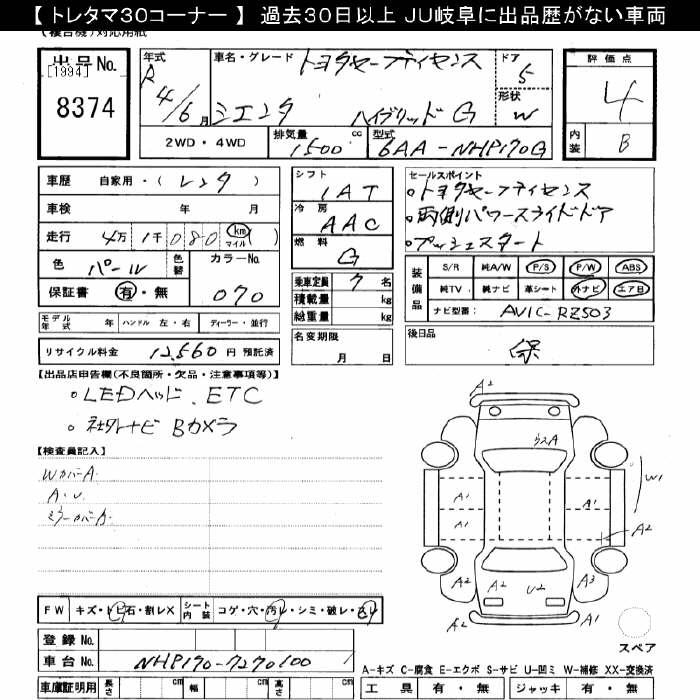 【 トレタマ30コーナー 】 過去30日以上 JU岐阜に出品歴がない車両
(複合機)対応用紙
出品No. [1994] 8374
年式 R 4/6月
車名・グレード トヨタセーフティセンス
シエンタ ハイブリッド G
ドア 5
形状 W
評価点 4
内装 B
2WD・4WD 排気量 1500 cc 型式 6AA-NHP170G
車歴 自家用・( レンタ )
車検 年 月
走行 4万 1千 080 km マイル ( )
色 パール 色替 カラーNo. 070
保証書 有・無
シフト IAT
冷房 AAC
燃料 G
乗車定員 7 名
積載量 kg
総重量 kg
名変期限 月 日
セールスポイント
・トヨタセーフティセンス
・両側パワースライドドア
・プッシュスタート
装備品 S/R 純A/W P/S P/W ABS
純TV 純ナビ 革シート 外ナビ エアB
ナビ型番: AVIC-RZ503
後日品 保
モデル年式 年 ハンドル 左・右 ディーラー・並行
リサイクル料金 12,560 円 預託済
【出品店申告欄(不良箇所・欠品・注意事項等)】
・LEDヘッド、ETC
・社外ナビ Bカメラ
【検査員記入】
WカバーA・
A・U・
ミラーカバーA・
A2
ガラスA
A1 A1
A1 A1
W1
A2
A2 A2 U2 A3
A2 A1
スペア
FW キズ・トビ石・割レX シート内装 コゲ・穴・汚レ・シミ・破レ・色レ
登録No.
車台No. NHP170-7270100
A-キズ C-腐食 E-エクボ S-サビ U-凹ミ W-補修 XX-交換済
車庫証明用 長さ cm 幅 cm 高さ cm
工具 有・無 ジャッキ 有・無